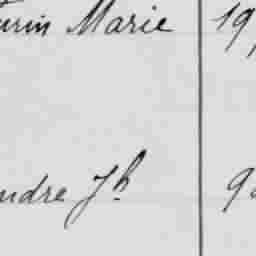 urin Marie 19,
ndre Jh 9